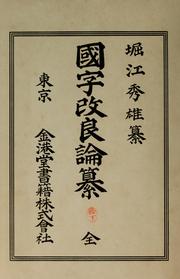 堀江秀雄纂
國字改良論纂
全
東京
金港堂書籍株式會社